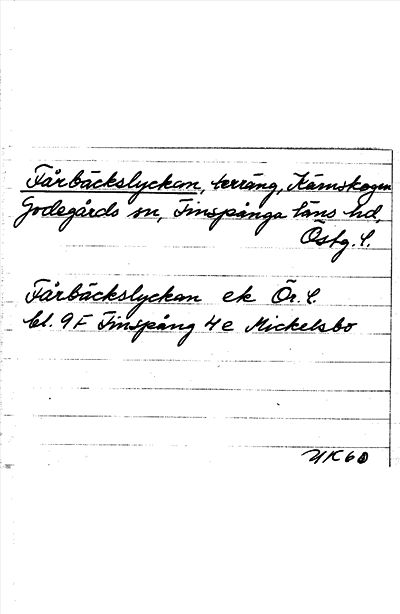 Fårbäckslyckan, terräng, Kämskogen
Godegårds sn, Finspånga läns hd,
Östg. l.
Fårbäckslyckan ek Ör. l.
bl. 9F Finspång 4e Mickelsbo